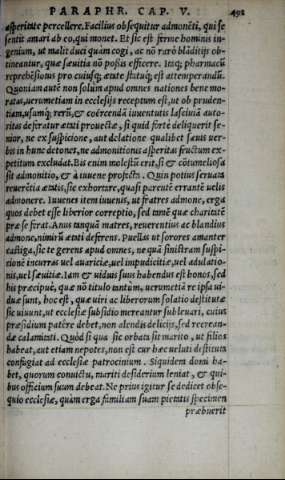 PARAPHR. CAP. V. 492
asperitate percellere. Facilius obsequitur admonẽti, qui se
sentit amari ab eo, qui monet. Et sic est ferme hominis in-
genium, ut malit duci quàm cogi, ac nõ rarò blãditijs ob-
tineantur, quæ sæuitia nõ possis efficere. Itaq; pharmacũ
reprehẽsionis pro cuiusq; ætate statuq; est attemperandũ.
Quoniam autẽ non solùm apud omnes nationes bene mo-
ratas, uerumetiam in ecclesijs receptum est, ut ob pruden-
tiam, usumq; rerũ, & coërcendã iuuentutis lasciuiã auto-
ritas deferatur ætati prouectæ, si quid fortè deliquerit se-
nior, ne ex suspicione, aut delatione qualibet sæuis uer-
bis in hunc detonet, ne admonitionis asperitas fructum ex-
petitum excludat. Bis enim molestũ erit, si & cõtumeliosa
sit admonitio, & à iuuene profecta. Quin potius seruata
reuerẽtia ætatis, sic exhortare, quasi parentẽ errantẽ uelis
admonere. Iuuenes item iuuenis, ut fratres admone, erga
quos debet esse liberior correptio, sed tamẽ quæ charitatẽ
præ se ferat. Anus tanquã matres, reuerentius ac blandius
admone, nimirũ ætati deferens. Puellas ut sorores amanter
castiga, sic te gerens apud omnes, ne quã sinistram suspi-
tionẽ incurras uel auaritiæ, uel impudicitiæ, uel adulatio-
nis, uel sæuitiæ. Iam & uiduis suus habendus est honos, sed
his præcipuè, quæ nõ titulo tantùm, uerumetiã re ipsa ui-
duæ sunt, hoc est, quæ uiri ac liberorum solatio destitutæ
sic uiuunt, ut ecclesiæ subsidio mereantur subleuari, cuius
præsidium patêre debet, non alendis delicijs, sed recrean-
dæ calamitati. Quòd si qua sic orbata sit marito, ut filios
habeat, aut etiam nepotes, non est cur hæc ueluti destituta
confugiat ad ecclesiæ patrocinium. Siquidem domi ha-
bet, quorum conuictu, mariti desiderium leniat, & qui-
bus officium suum debeat. Ne prius igitur se dedicet obse-
quio ecclesiæ, quàm erga familiam suam pietatis specimen
præbuerit